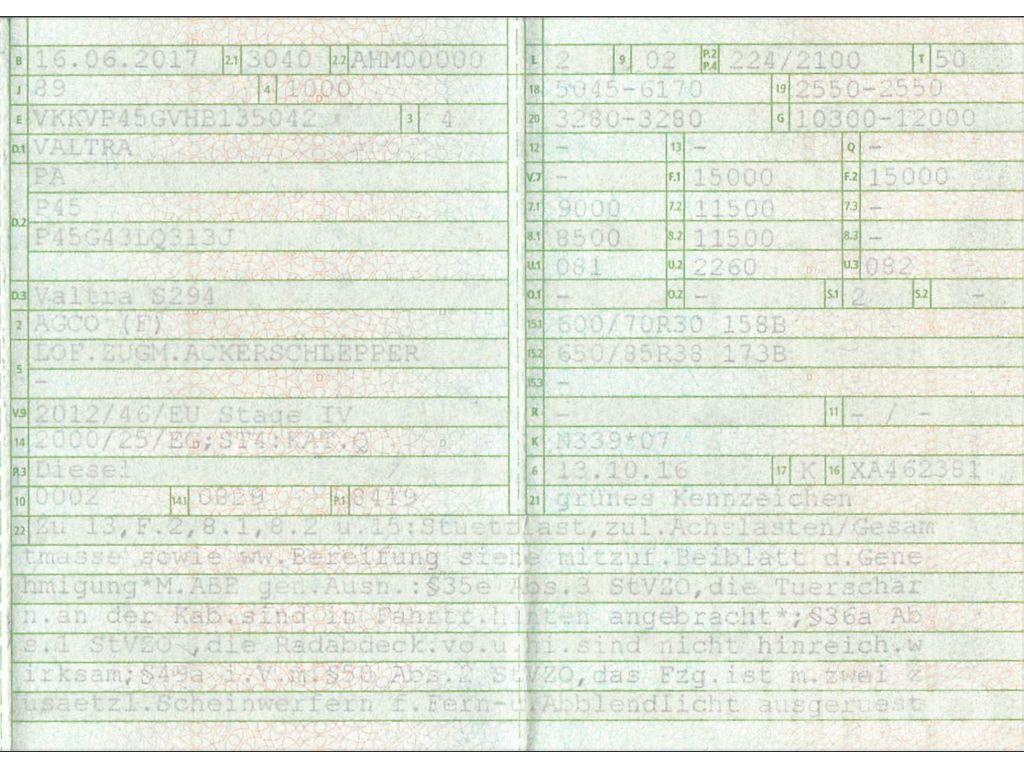 B 16.06.2017 2.1 3040 2.2 AHM00000
J 89 4 1000
E VKKVP45GVHB135042 3 4
D.1 VALTRA
PA
D.2 P45
P45G43LQ313J
D.3 Valtra S294
2 AGCO (F)
5 LOF.ZUGM.ACKERSCHLEPPER
-
V.9 2012/46/EU Stage IV
14 2000/25/EG;ST4:KAT.Q
P.3 Diesel
10 0002 14.1 0829 P.1 8419
L 2 9 02 P.2 P.4 224/2100 T 50
18 5045-6170 19 2550-2550
20 3280-3280 G 10300-12000
12 - 13 - Q -
V.7 - F.1 15000 F.2 15000
7.1 9000 7.2 11500 7.3 -
8.1 8500 8.2 11500 8.3 -
U.1 081 U.2 2260 U.3 082
O.1 - O.2 - S.1 2 S.2 -
15.1 600/70R30 158B
15.2 650/85R38 173B
15.3 -
R - 11 - / -
K N339*07
6 13.10.16 17 K 16 XA462381
21 grünes Kennzeichen
22 Zu 13,F.2,8.1,8.2 u.15:Stuetzlast,zul.Achslasten/Gesam
tmasse sowie ww.Bereifung siehe mitzuf.Beiblatt d.Gene
hmigung*M.ABE gen.Ausn.:§35e Abs.3 StVZO,die Tuerschar
n.an der Kab.sind in Fahrtr.hinten angebracht*;§36a Ab
s.1 StVZO ,die Radabdeck.vo.u.hi.sind nicht hinreich.w
irksam;§49a i.V.m.§50 Abs.2 StVZO,das Fzg.ist m.zwei z
usaetzl.Scheinwerfern f.Fern-u.Abblendlicht ausgeruest